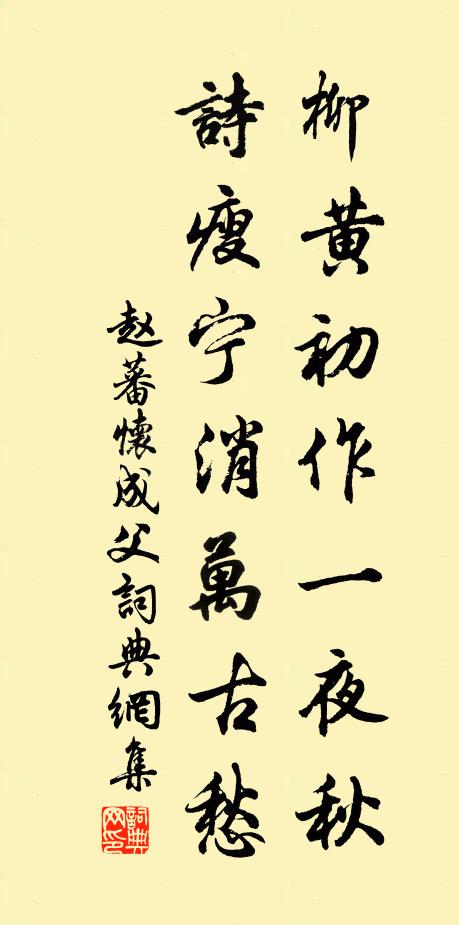 柳黄初作一夜秋
詩瘦宁消萬古愁
赵蕃懷成父詞典網集
詞典網印